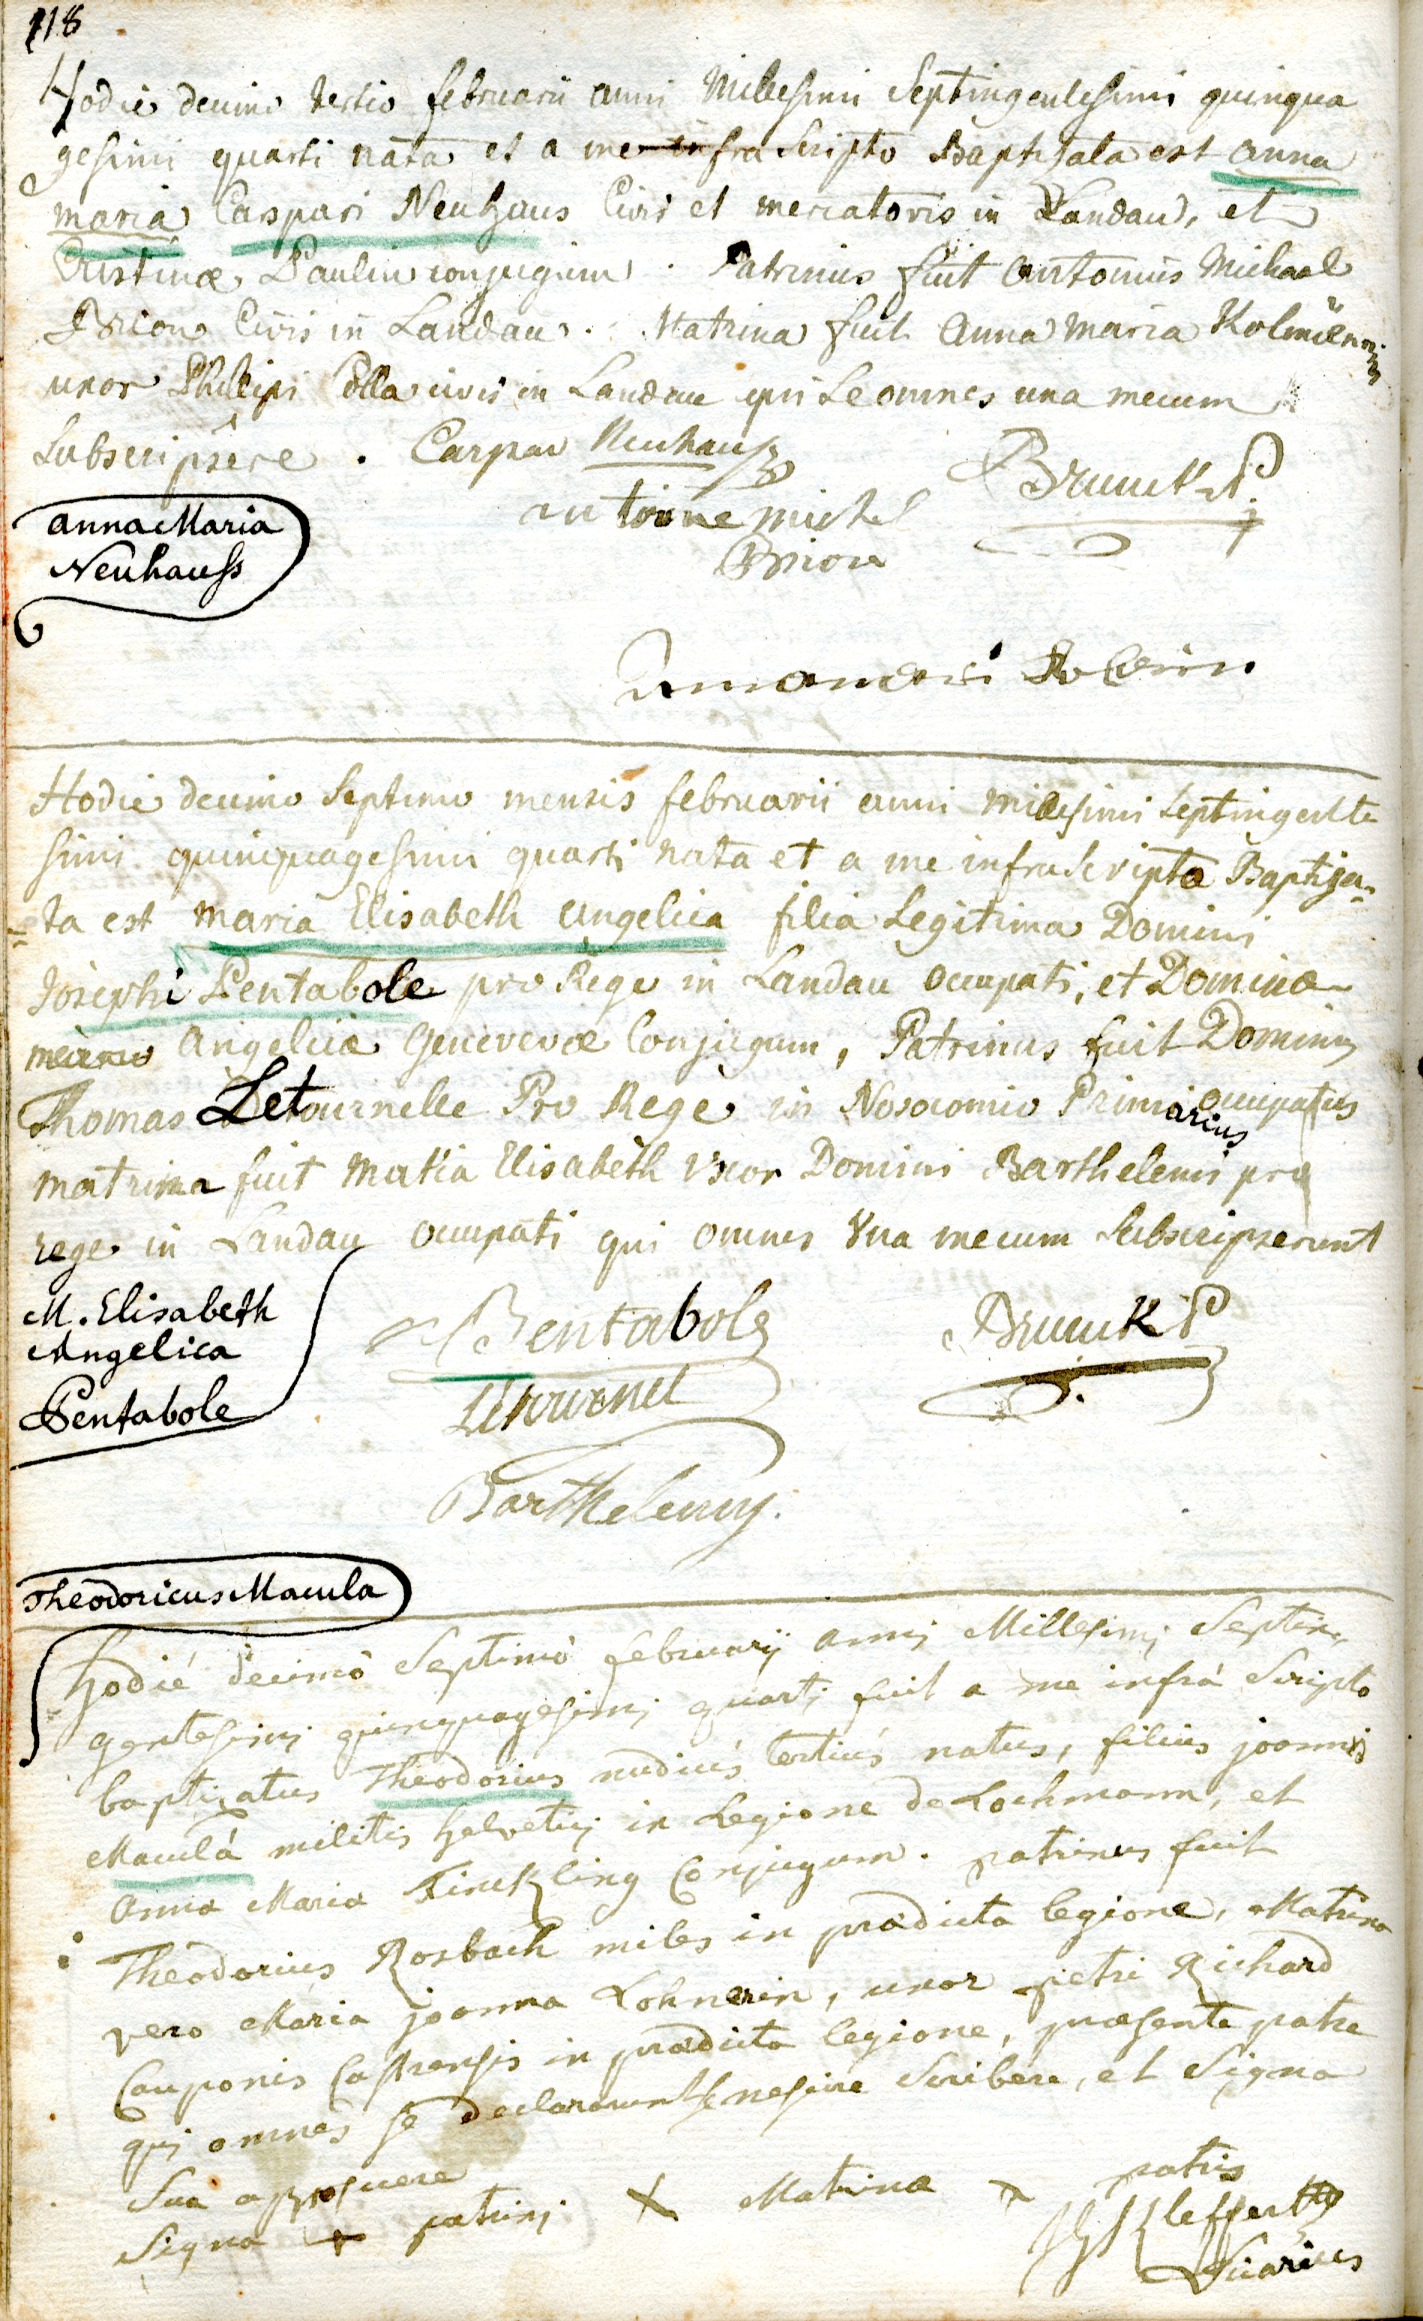 118
Hodie decimo tertio februarii anni Millesimi Septingentesimi quinqua
gesimi quarti nata et a me infra Scripto Baptisata est anna
maria Caspari Neuhaus Civis et mercatoris in Landau, et
Cristinæ Paulin conjugum. Patrinus fuit antonius Michael
Brion Civis in Landau. Matrina fuit Anna Maria
uxor Philipi Colla civis in Landau qui se omnes una mecum
Subscripsere. Caspar Neuhaus
Brunck P.
antoinne michel
Brion
anna Maria
Neuhauss
Hodie decimo Septimo mensis februarii anni millesimi Septingente
simi quinquagesimi quarti nata et a me infra Scripto Baptiza-
ta est maria Elisabeth Angelica filia Legitima Domini
Josephi Pentabole pro Rege in Landau occupati, et Dominæ
Angelicæ Genevevæ Conjugum, Patrinus fuit Dominus
Thomas Letournelle Pro Rege in Nosocomio Primiarius occupatus
matrina fuit Maria Elisabeth Uxor Domini Barthelemi pro
rege in Landau occupati qui omnes Una mecum Subscripserunt
M. Elisabeth
Angelica
Pentabole
Bentabole
Brunck P
Letournel
Barthelemy.
Theodoricus Macula
hodié decimò Septimò februarij annj Millesimj Septin-
gentesimj quinquagesimj quartj fuit a me infrá Scripto
baptizatus Theodorius nudiús tertiús natus, filius joannis
Maculá militis helvetij in Legione de Lochmann, et
Anna Maria Finckling Conjugum. patrinus fuit
Theodorius Rosbach miles in prædicta legione, Matrina
vero Maria joanna Lohnerin, uxor petri Richard
Cauponis Castrensis in prædicta legione, præsente patre
qui omnes se declararunt nescire Scribere, et Signa
Sua apposuere
Signa + patrinj X Matrinæ patris
Kleffert
Vicarius